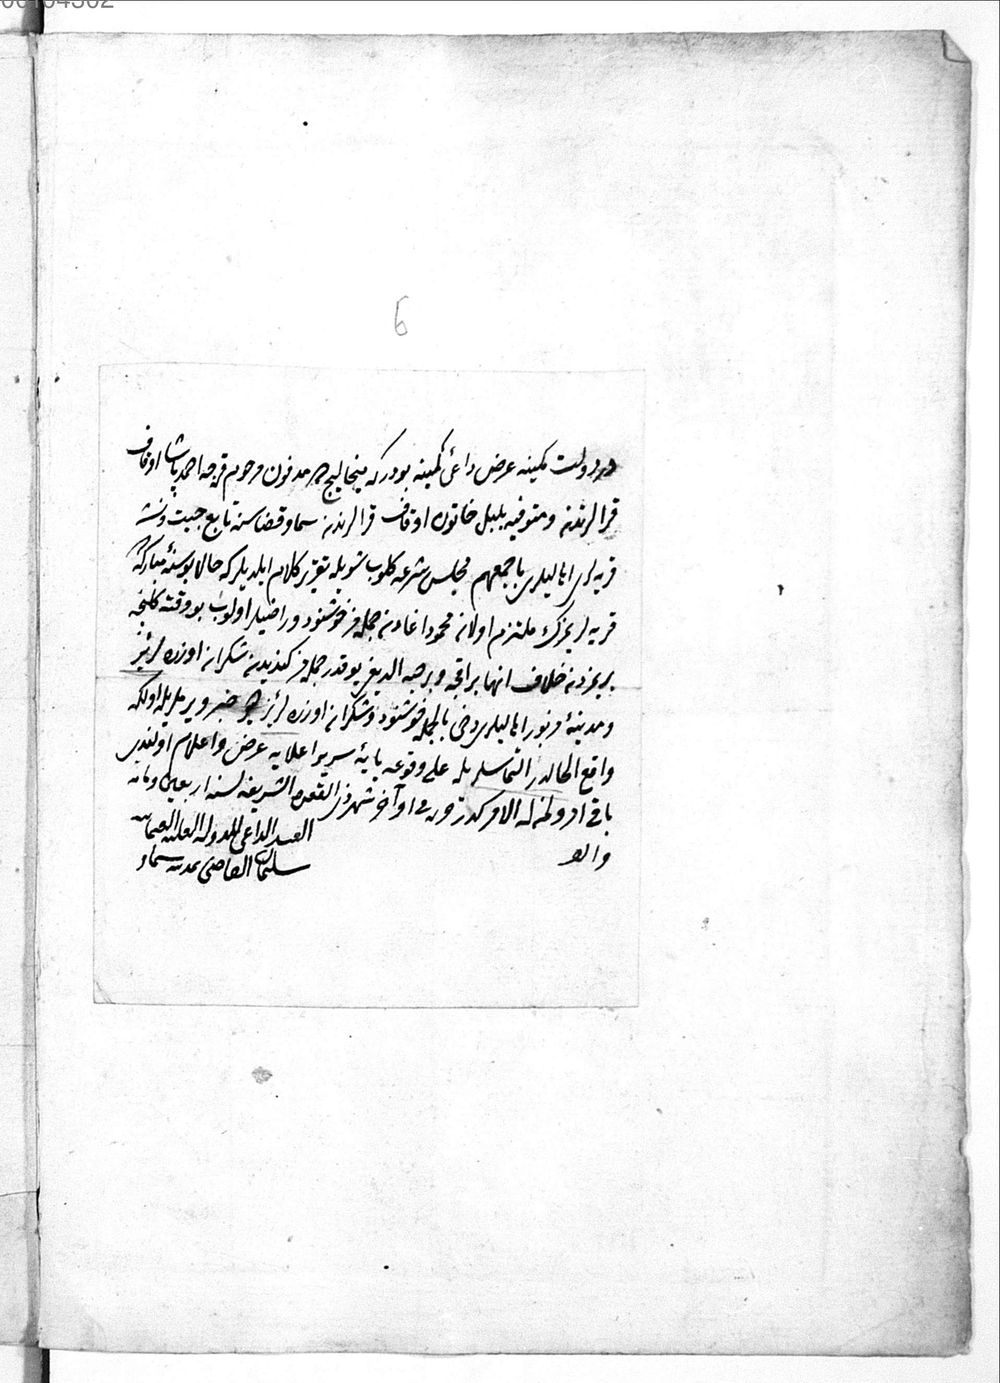 6
در دولت مكينه عرض داعئ كمينه بودركه ميخاليج ده مدفون مرحوم قرجه احمد پاشا اوقاف
قرالرندن ومتوفيه بلبل خاتون اوقاف قرالرندن سماو قضاسنه تابع جيت و
قريه لرى اهاليلرى باجمعهم مجلس شرعه كلوب شويله تقرير كلام ايلديلركه حالا بوسنۀ مباركه
قريه لريمزك ملتزم اولان محمود اغادن جمله مز خوشنود وراضيلر اولوب بو وقته كلنجه
بريمزدن خلاف انها بر اقچه وبر حبه الديغى يوقدر جمله مز كنديدن شكران اوزره لريز
ومدينۀ مزبور اهاليلرى دخى بالجمله خوشنود وشكران اوزره لريز ديو خبر ويرملريله اولكه
واقع الحالدر التماسلريله على وقوعه پايۀ سرير اعلايه عرض واعلام اولندى
باقى امر ولمن له الامر كدر حرر فى اواخر شهر ذى القعده الشريفه لسنه اربعين ومائه
والف
العبد الداعى للدولة العلية العثمانيه
سليمان القاضى بمدينه سماو